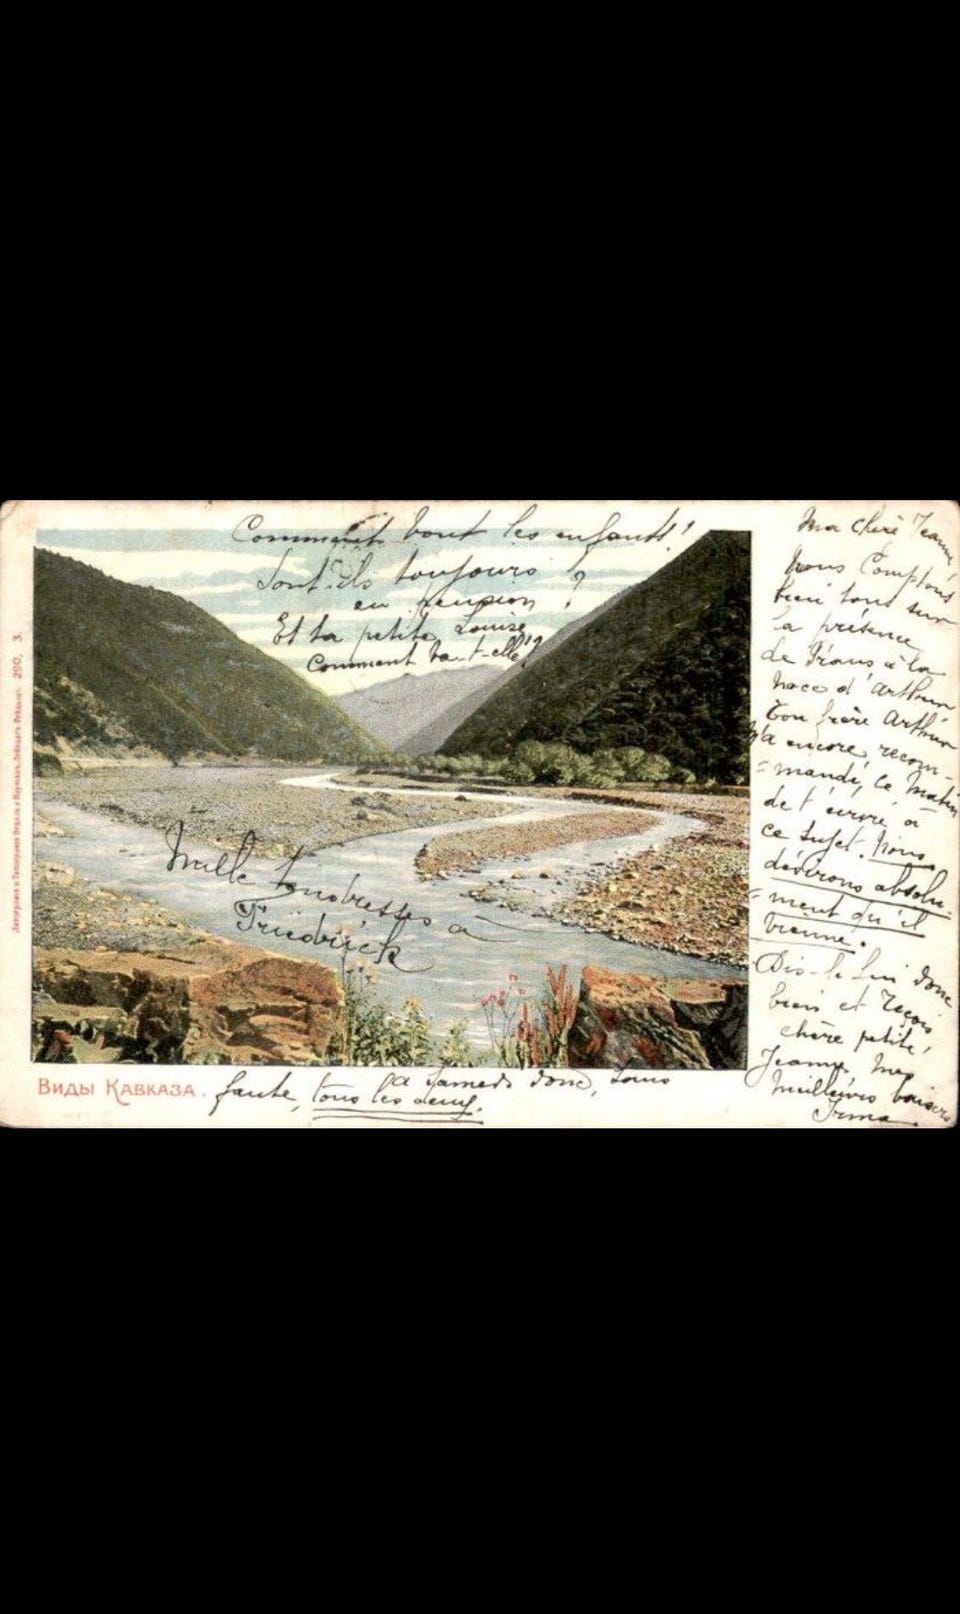 Ma chère Jeanne,
Nous Comptons
bien tous sur
la présence
de Frans à la
noce d'Arthur
Ton frère Arthur
m'a encore recom-
=mandé, ce matin
de t'écrire à
ce sujet. Nous
désirons absolu-
=ment qu'il
vienne.
Dis-le lui donc
bien et reçois
chère petite
Jeanne, mes
meilleurs baisers
Irma.
Comment vont les enfants?
Sont-ils toujours
en pension ?
Et ta petite Louise,
Comment va-t-elle?
Mille tendresses à
Friedrick
à Samedi donc, sans
faute, tous les deux.
Виды Кавказа.
290, 3.